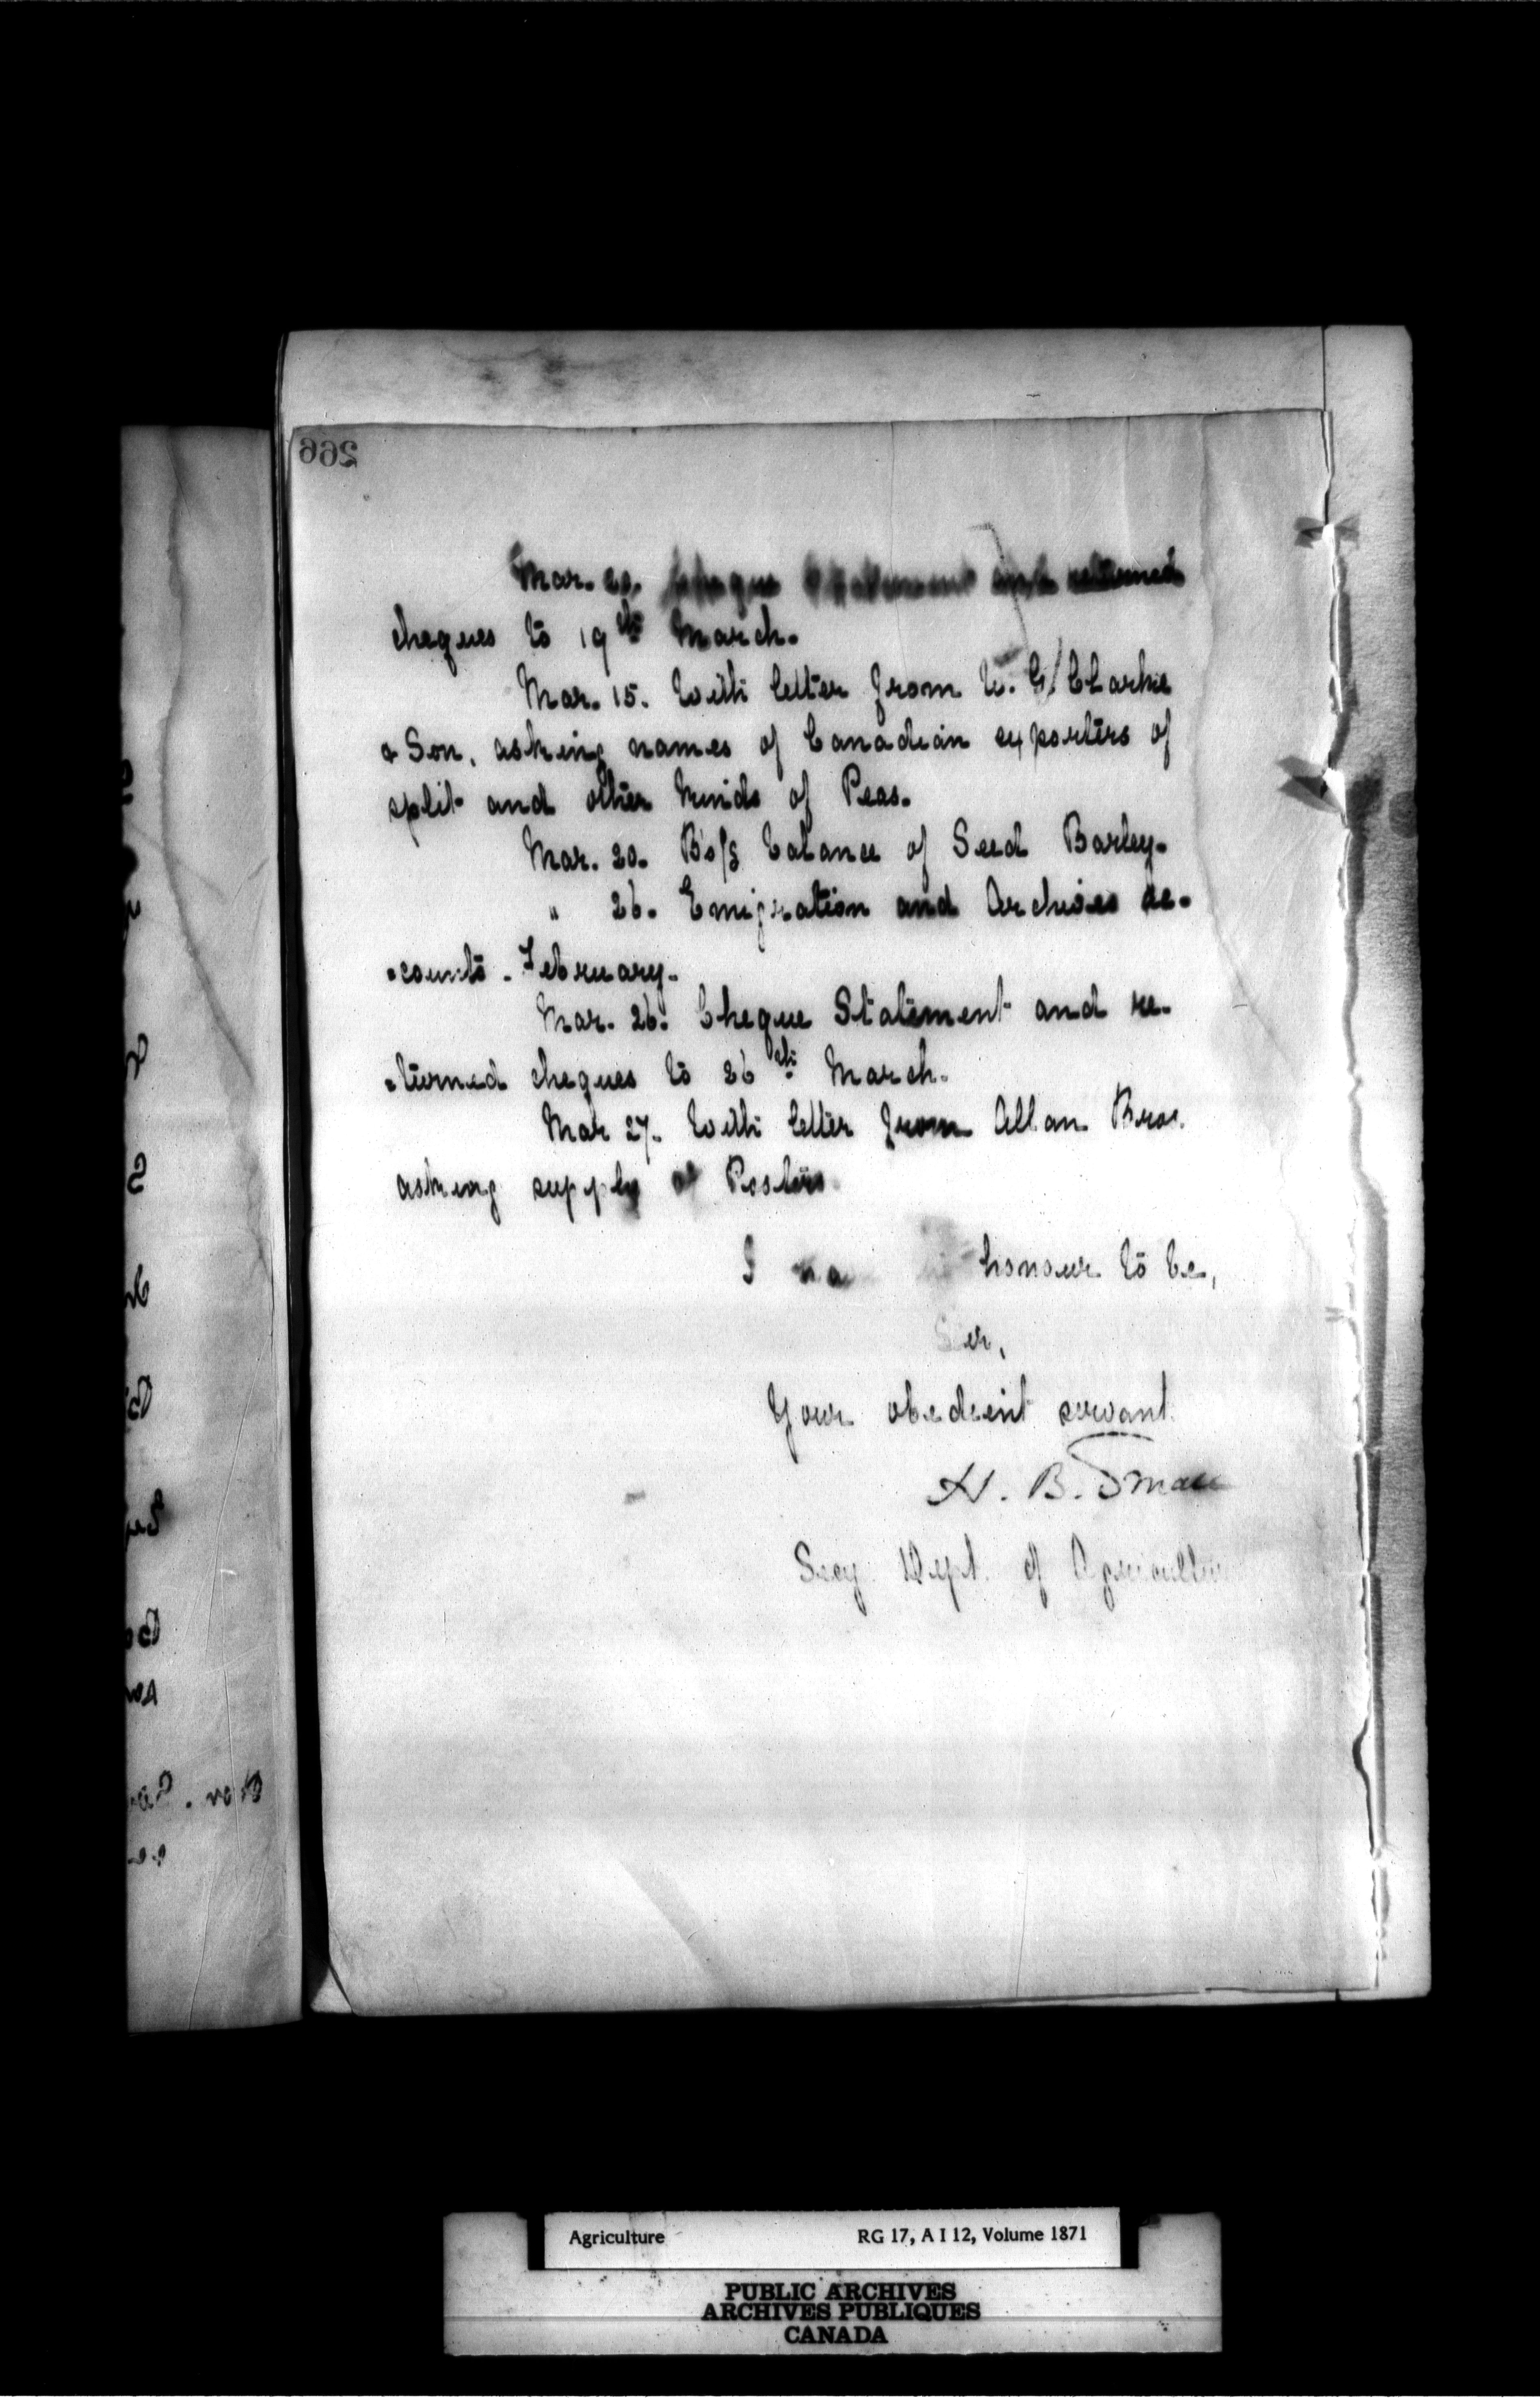 266
Mar. 20. Cheque Statement and returned
cheques to 19th March.
Mar. 15. With letter from G. Clarke
& Son, asking names of Canadian exporters of
split and other kinds of Peas.
Mar. 20. Bs/g balance of Seed Barley.
" 26. Emigration and Archives ac-
-counts. February.
Mar. 26. Cheque Statement and re-
-turned cheques to 26th March.
Mar 27. With letter from Allan Bros.
asking supply of Posters
I have the honour to be,
Sir,
Your obedient servant.
H. B. Small
Secy. Dept. of Agriculture
Agriculture RG 17, A I 12, Volume 1871
PUBLIC ARCHIVES
ARCHIVES PUBLIQUES
CANADA